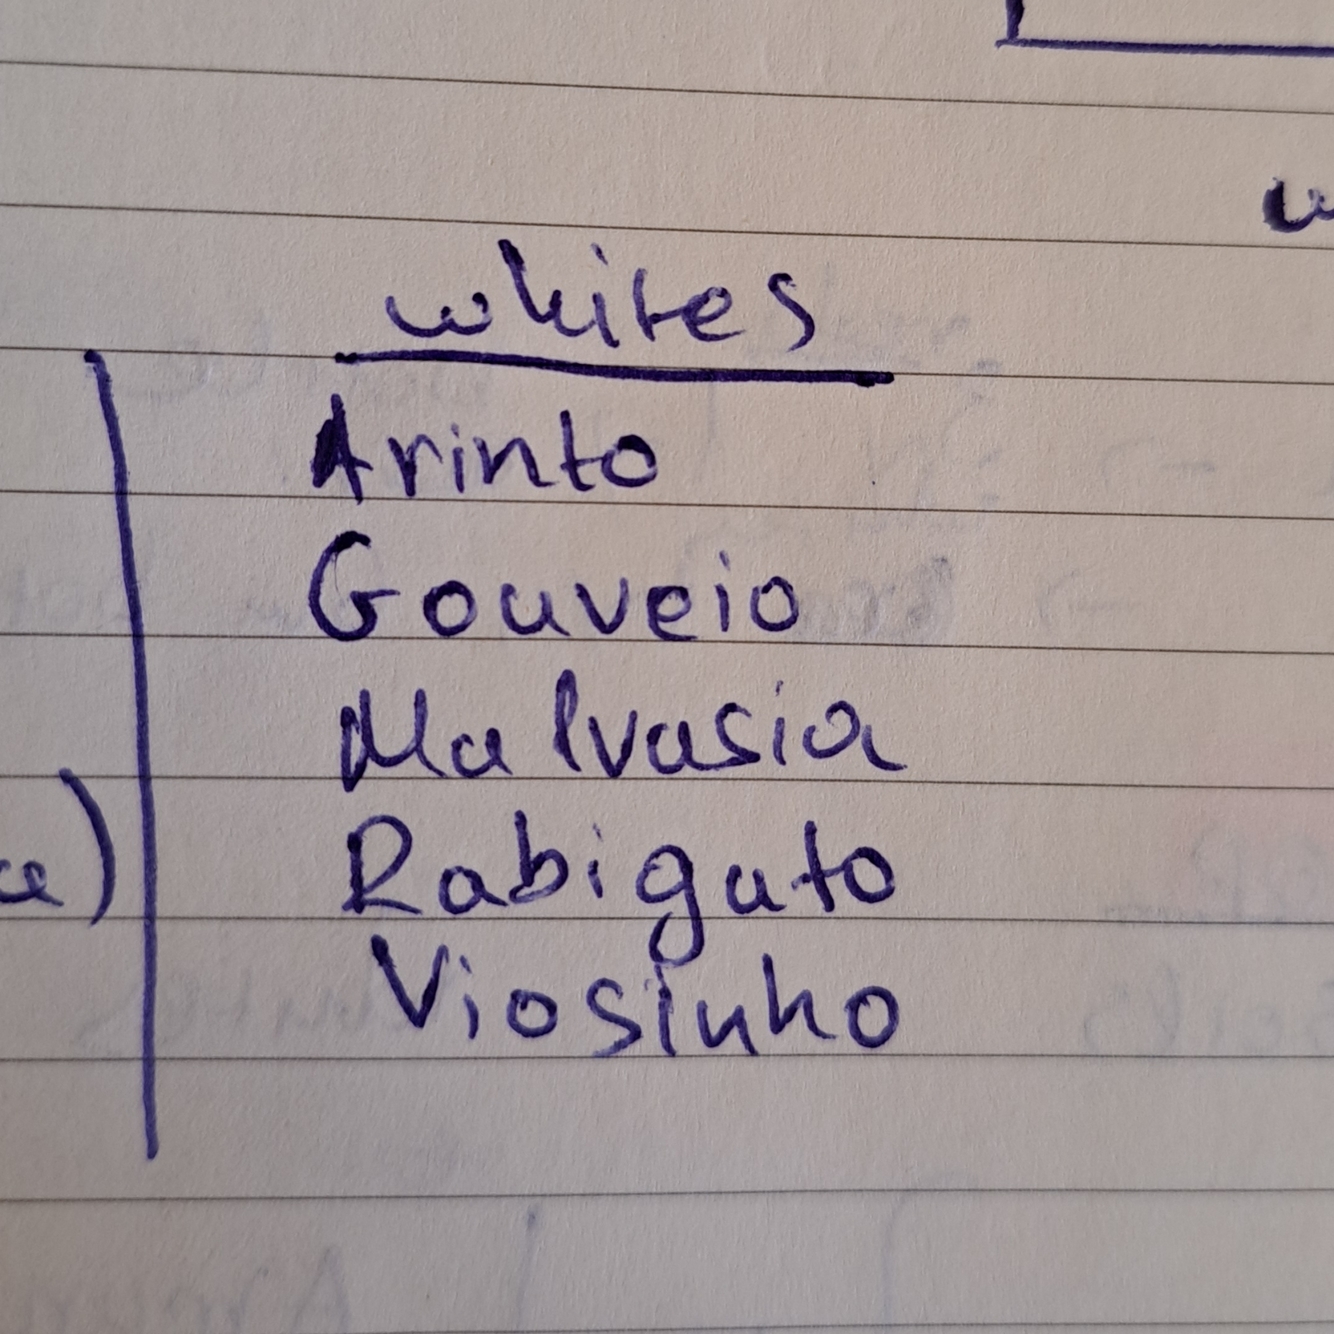 whites
Arinto
Gouveio
Malvasia
Rabigato
Viosinho